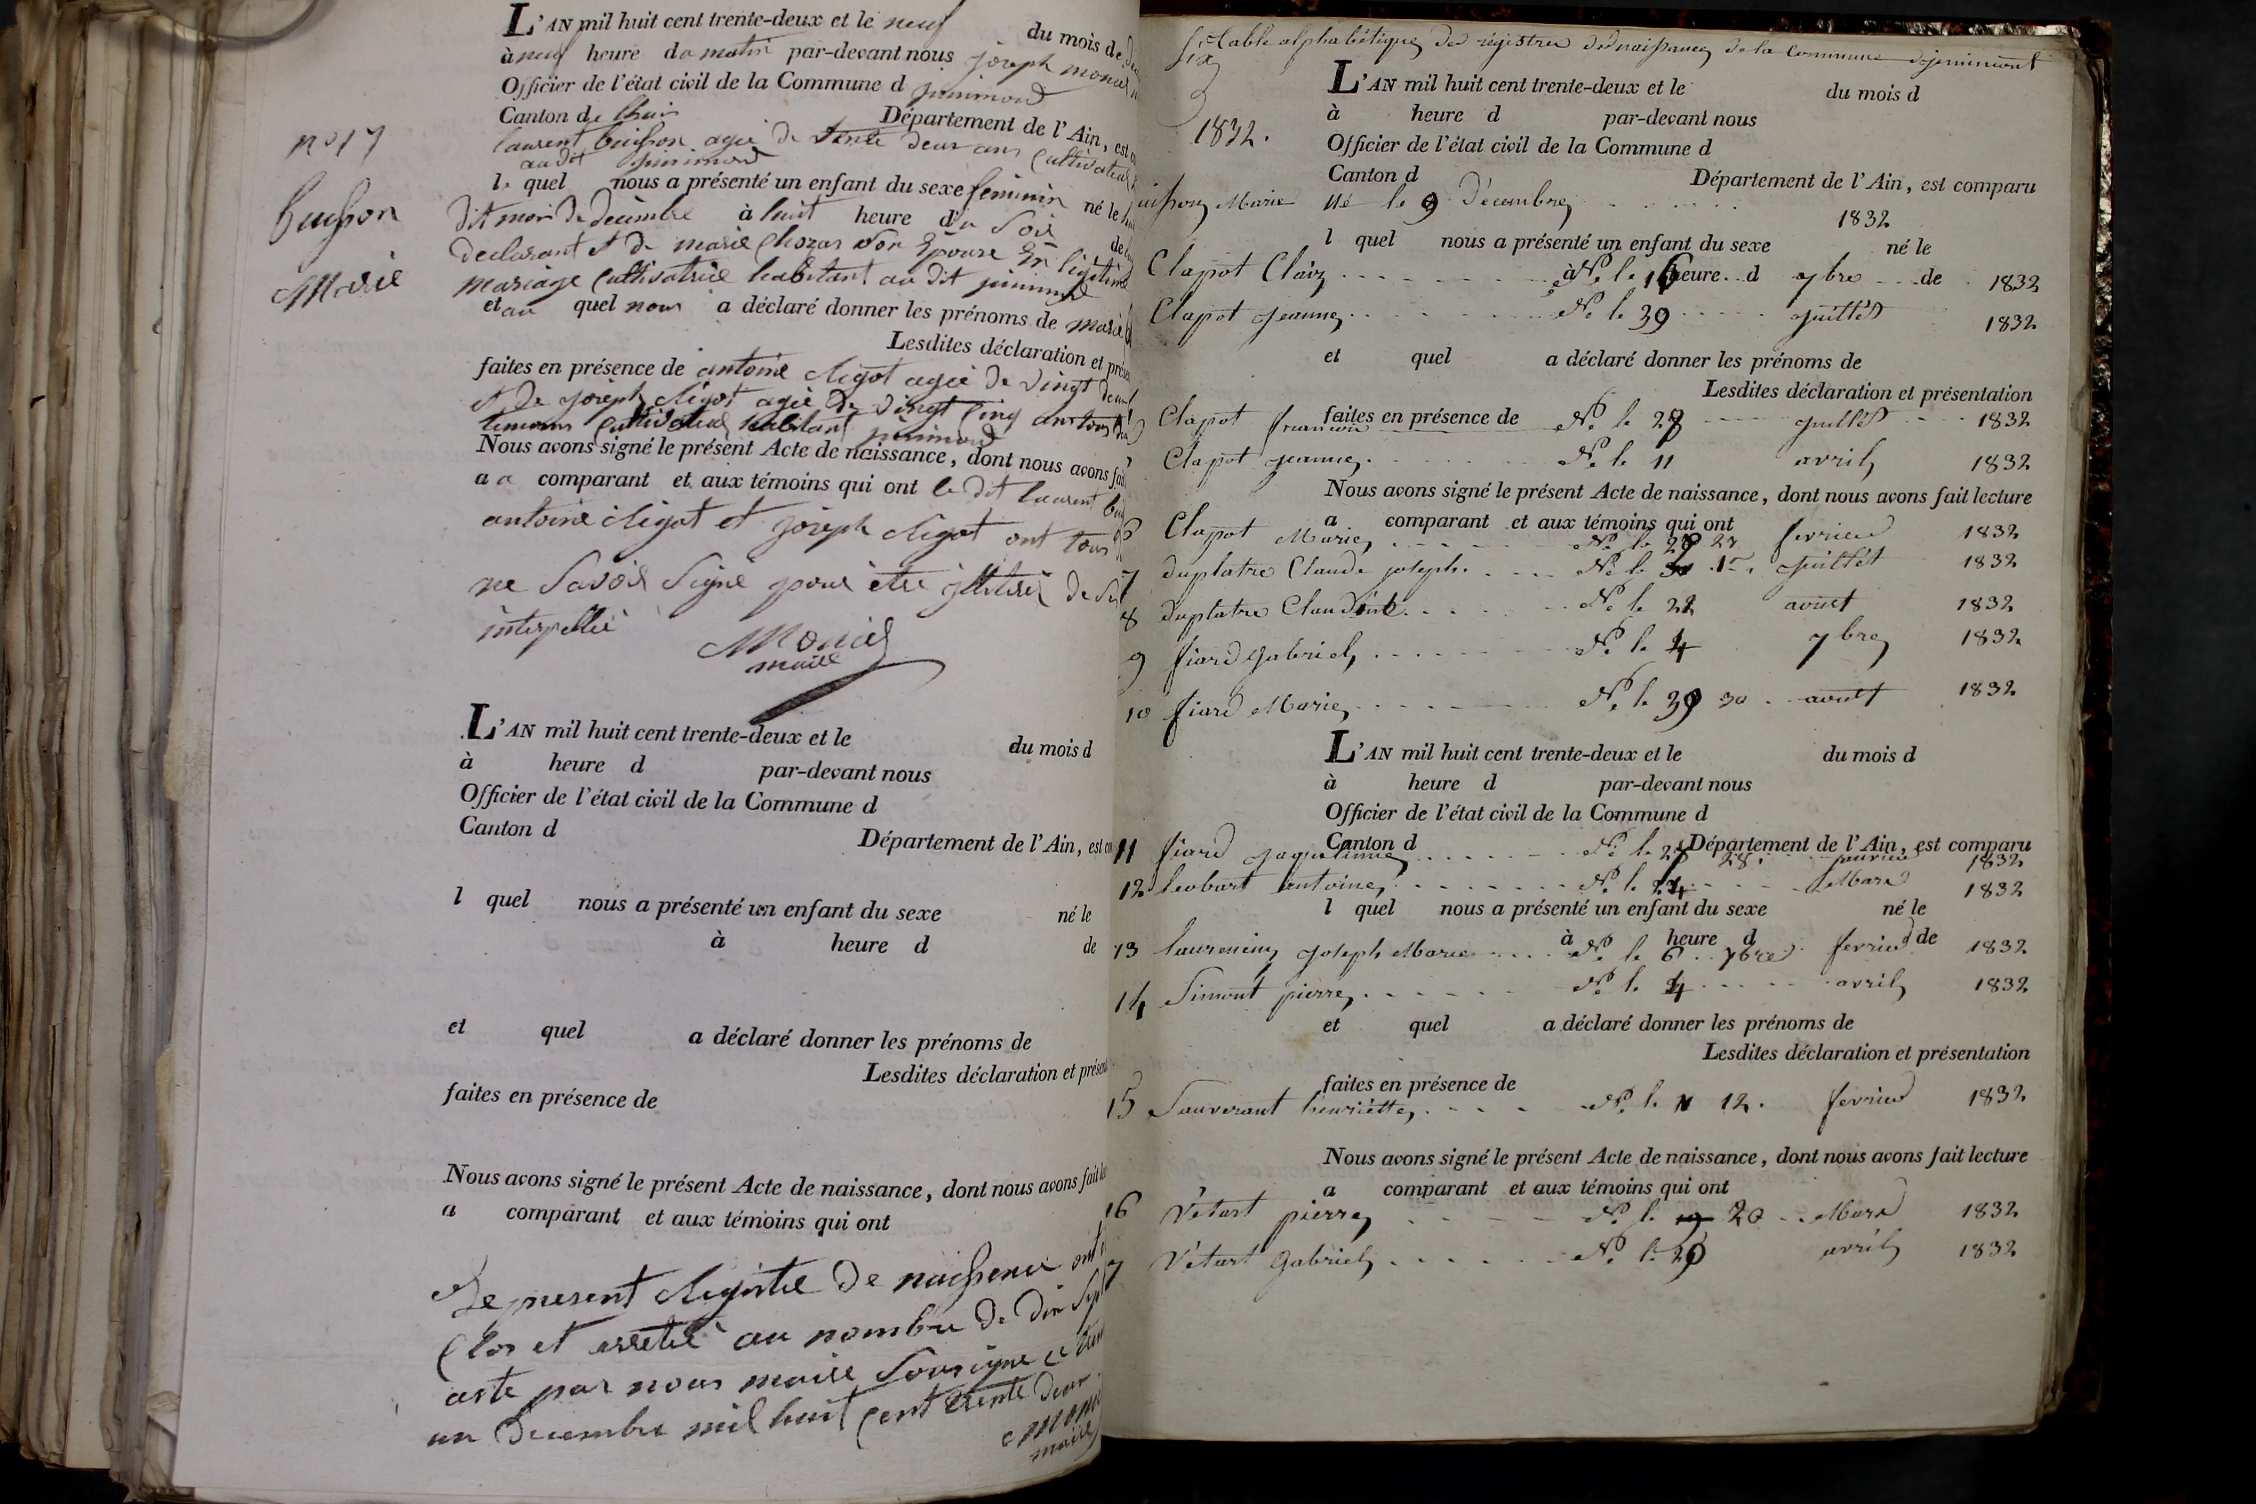 L'AN mil huit cent trente-deux et le neuf du mois de
à neuf heure du matin par-devant nous joseph moniel
Officier de l'état civil de la Commune d jinimond
Canton de lhuis Département de l'Ain, est
laurent buisson agée de trente deux ans Cultivateur
au dit jinimond
le quel nous a présenté un enfant du sexe feminin né le
n° 17
buisson
Marie
dit mois de decembre à huit heure du Soir de
declarant et de marie Chozas son Epouse En légitime
mariage Cultivatrice habitant au dit jinimond
et au quel nous a déclaré donner les prénoms de marie
Lesdites déclaration et
faites en présence de antoine Rigot agée de vingt
et de joseph Rigot agée de vingt Cinq ans tous
temoins Cultivateur habitant jinimond
Nous avons signé le présent Acte de naissance, dont nous avons fait
a a comparant et aux témoins qui ont le dit laurent
antoine Rigot et joseph Rigot ont tous
ne Savoir Signé pour être
interpellée
Moniel
maire
L'AN mil huit cent trente-deux et le du mois d
à heure d par-devant nous
Officier de l'état civil de la Commune d
Canton d Département de l'Ain, est
l quel nous a présenté un enfant du sexe né le
à heure d de
et quel a déclaré donner les prénoms de
Lesdites déclaration et
faites en présence de
Nous avons signé le présent Acte de naissance, dont nous avons fait
a comparant et aux témoins qui ont
Le present Registre de naissence ont
Clos et arretée au nombre de dix Sept
acte par nous maire Sousigné ce
un decembre mil huit Cent trente deux
maire
table alphabétique des régistre de naissance de la Commune
L'AN mil huit cent trente-deux et le du mois d
à heure d par-devant nous
1832.
Officier de l'état civil de la Commune d
Canton d Département de l'Ain, est comparu
Marie Né le 9 Décembre
1832
l quel nous a présenté un enfant du sexe né le
à heure d de
Clapot Claire N. le 16 7bre 1832
Clapot jeanne N. le 30 juillet 1832
et quel a déclaré donner les prénoms de
Lesdites déclaration et présentation
faites en présence de
Clapot N. le 28 juillet 1832
Clapot jeanne N. le 11 avril 1832
Nous avons signé le présent Acte de naissance, dont nous avons fait lecture
a comparant et aux témoins qui ont
6 Clapot Marie N. le fevrier 1832
7 duplatre Claude joseph N. le 1er juillet 1832
8 duplatre Claudine N. le 22 aout 1832
9 fiard gabriel N. le 4 7bre 1832
10 fiard Marie N. le 30 aout 1832
L'AN mil huit cent trente-deux et le du mois d
à heure d par-devant nous
Officier de l'état civil de la Commune d
Canton d Département de l'Ain, est comparu
11 fiard N. le 28 1832
12 antoine N. le 24 Mars 1832
l quel nous a présenté un enfant du sexe né le
à heure d de
13 joseph Marie N. le 6 fevrier 1832
14 Simont pierre N. le 4 avril 1832
et quel a déclaré donner les prénoms de
Lesdites déclaration et présentation
faites en présence de
15 henriette N. le 12 fevrier 1832
Nous avons signé le présent Acte de naissance, dont nous avons fait lecture
a comparant et aux témoins qui ont
16 Vétart pierre N. le 20 Mars 1832
7 Vétart gabriel N. le avril 1832